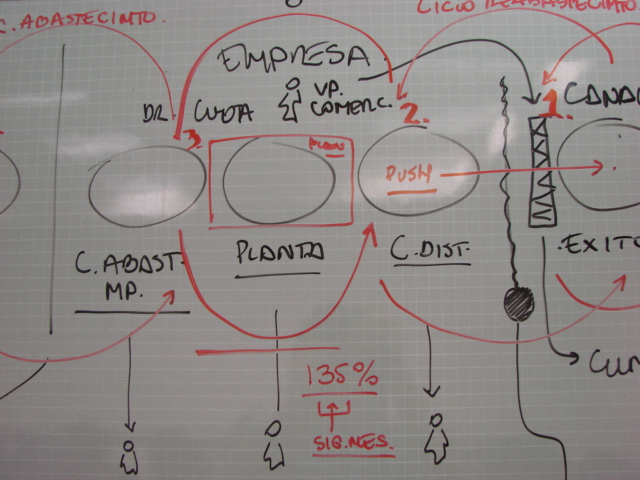 C. ABASTECIMTO
CICLO REABASTECIMTO
EMPRESA
VP.
COMERC.
DR. CUOTA
3
2.
1.
CANA
PLANO
PUSH
C. ABAST.
MP.
PLANTA
C. DIST.
.EXITO
CUM
135%
SIG. MES.